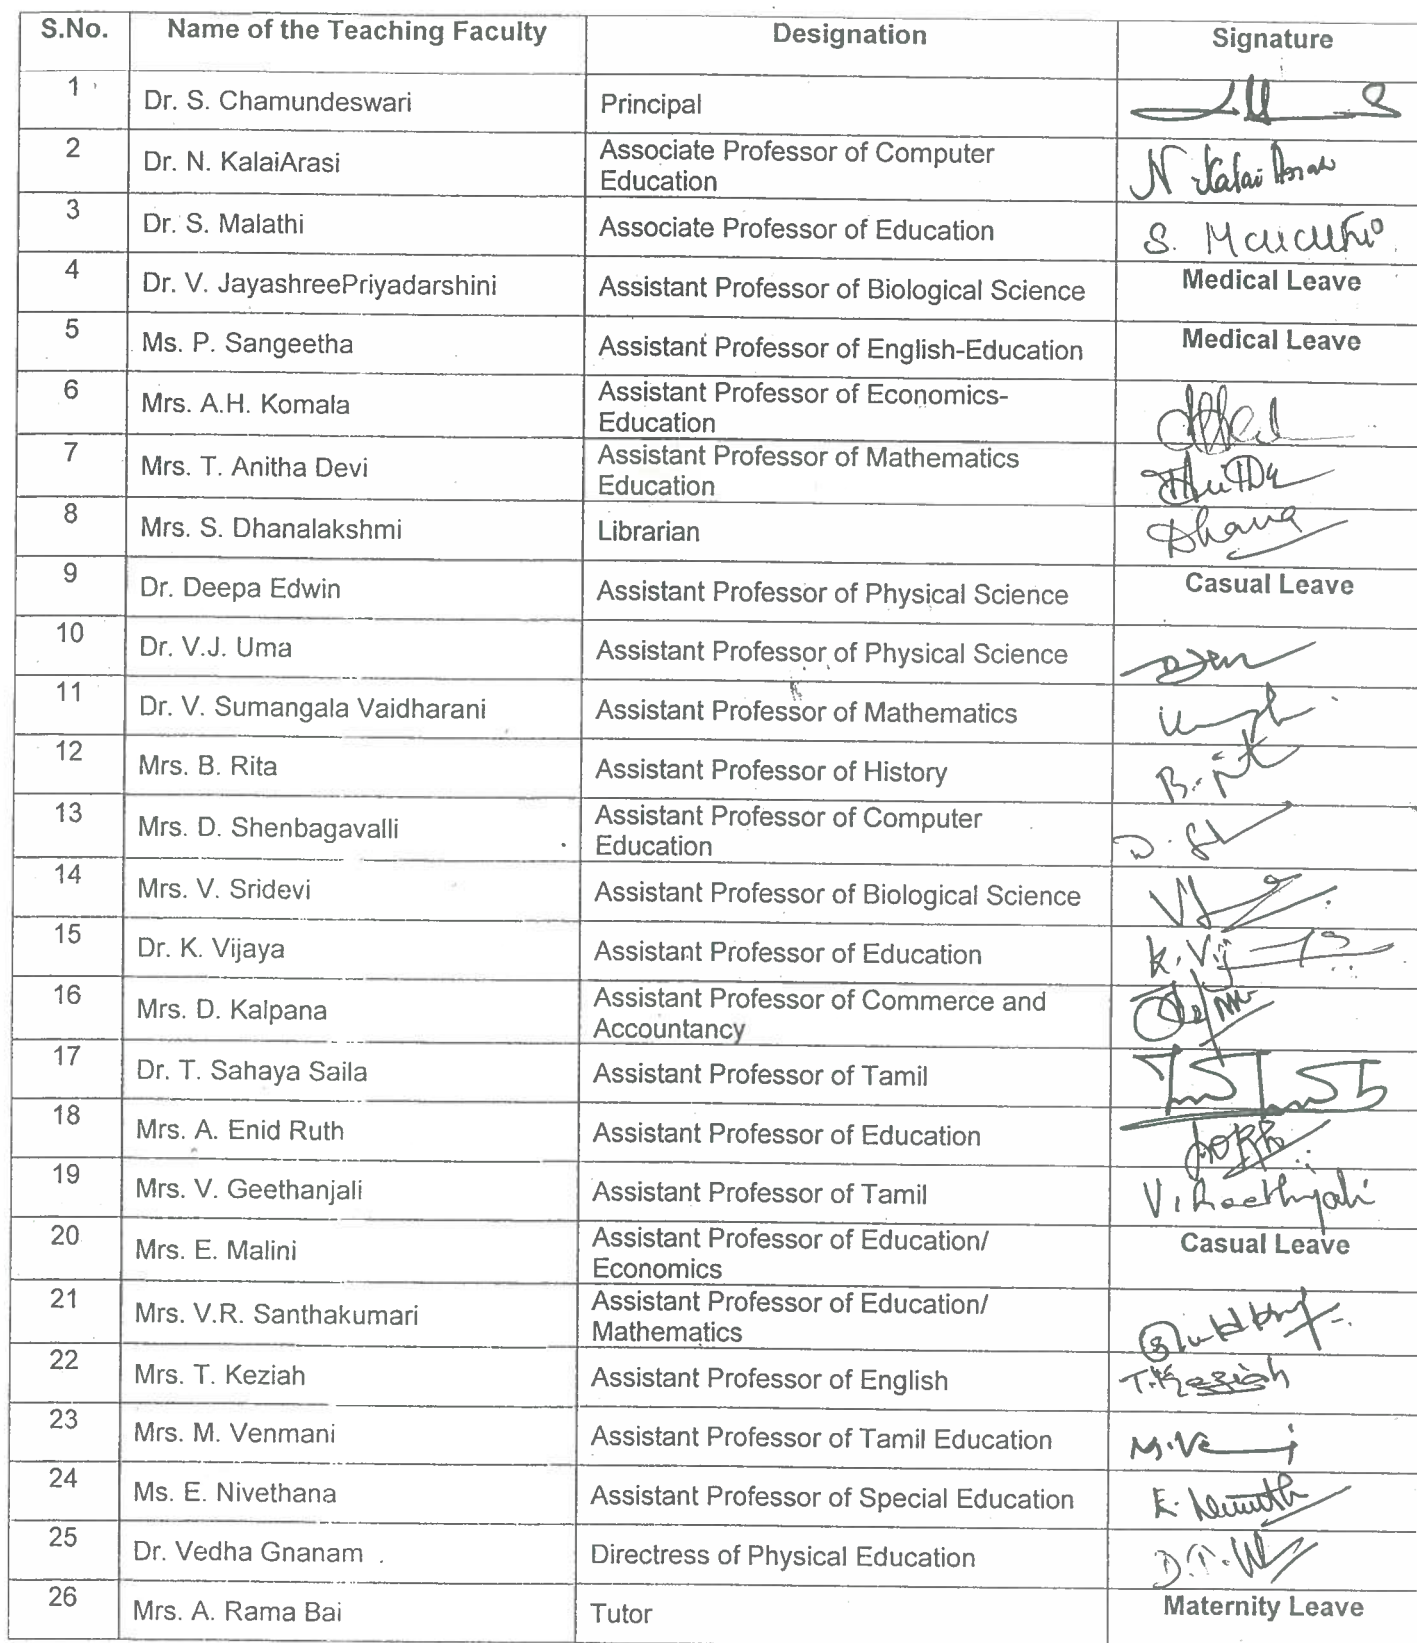 S.No. Name of the Teaching Faculty Designation Signature
1 Dr. S. Chamundeswari Principal
2 Dr. N. KalaiArasi Associate Professor of Computer
Education N. Kalai Arasi
3 Dr. S. Malathi Associate Professor of Education S. Malathi
4 Dr. V. JayashreePriyadarshini Assistant Professor of Biological Science Medical Leave
5 Ms. P. Sangeetha Assistant Professor of English-Education Medical Leave
6 Mrs. A.H. Komala Assistant Professor of Economics-
Education
7 Mrs. T. Anitha Devi Assistant Professor of Mathematics
Education
8 Mrs. S. Dhanalakshmi Librarian Dhana
9 Dr. Deepa Edwin Assistant Professor of Physical Science Casual Leave
10 Dr. V.J. Uma Assistant Professor of Physical Science
11 Dr. V. Sumangala Vaidharani Assistant Professor of Mathematics
12 Mrs. B. Rita Assistant Professor of History
13 Mrs. D. Shenbagavalli Assistant Professor of Computer
Education
14 Mrs. V. Sridevi Assistant Professor of Biological Science
15 Dr. K. Vijaya Assistant Professor of Education
16 Mrs. D. Kalpana Assistant Professor of Commerce and
Accountancy
17 Dr. T. Sahaya Saila Assistant Professor of Tamil
18 Mrs. A. Enid Ruth Assistant Professor of Education
19 Mrs. V. Geethanjali Assistant Professor of Tamil V. Geethnjali
20 Mrs. E. Malini Assistant Professor of Education/
Economics Casual Leave
21 Mrs. V.R. Santhakumari Assistant Professor of Education/
Mathematics
22 Mrs. T. Keziah Assistant Professor of English T. Keziah
23 Mrs. M. Venmani Assistant Professor of Tamil Education
24 Ms. E. Nivethana Assistant Professor of Special Education
25 Dr. Vedha Gnanam . Directress of Physical Education
26 Mrs. A. Rama Bai Tutor Maternity Leave